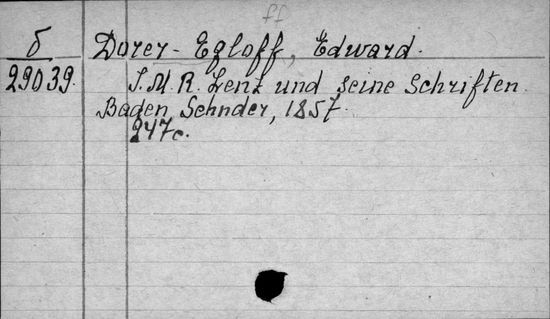 ff
б Dorer-Egloff, Edward.
29039. J. M. R. Lenz und seine Schriften.
Baden, Sehnder, 1857.
247c.